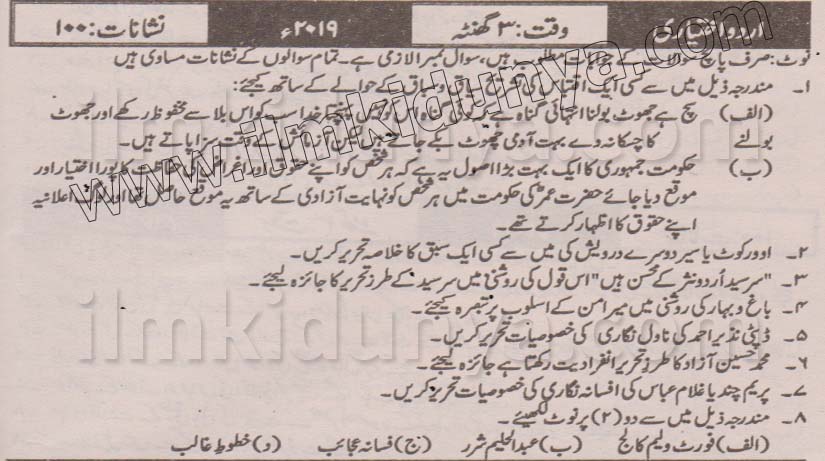 اردو اختیاری
وقت: ۳ گھنٹہ
۲۰۱۹ء
نشانات: ۱۰۰
نوٹ: صرف پانچ سوالات کے جوابات مطلوب ہیں، سوال نمبر ا لازمی ہے۔ تمام سوالوں کے نشانات مساوی ہیں
۱۔ مندرجہ ذیل میں سے کسی ایک اقتباس کی تشریح سیاق و سباق کے حوالے کے ساتھ کیجئے:
(الف) سچ ہے جھوٹ بولنا انتہائی گناہ ہے کہ کوئی گناہ اس کو نہیں پہنچتا خدا سب کو اس بلا سے محفوظ رکھے اور جھوٹ بولنے
کا چسکا نہ دے بہت آدمی جھوٹ بکے جاتے ہیں وقت سزا پاتے ہیں۔
(ب) حکومت جمہوری کا ایک بہت بڑا اصول یہ ہے کہ ہر شخص کو اپنے حقوق اور کا پورا اختیار اور
موقع دیا جائے حضرت عمرؓ کی حکومت میں ہر شخص کو نہایت آزادی کے ساتھ یہ موقع حاصل تھا اور اعلانیہ
اپنے حقوق کا اظہار کرتے تھے۔
۲۔ اوورکوٹ یا سیر دوسرے درویش کی میں سے کسی ایک سبق کا خلاصہ تحریر کریں۔
۳۔ "سرسید اُردو نثر کے محسن ہیں" اس قول کی روشنی میں سرسید کے طرز تحریر کا جائزہ لیجئے۔
۴۔ باغ و بہار کی روشنی میں میر امن کے اسلوب پر تبصرہ کیجئے۔
۵۔ ڈپٹی نذیر احمد کی ناول نگاری کی خصوصیات تحریر کریں۔
۶۔ محمد حسین آزاد کا طرز تحریر انفرادیت رکھتا ہے جائزہ لیجئے۔
۷۔ پریم چند یا غلام عباس کی افسانہ نگاری کی خصوصیات تحریر کریں۔
۸۔ مندرجہ ذیل میں سے دو (۲) پر نوٹ لکھیئے۔
(الف) فورٹ ولیم کالج (ب) عبدالحلیم شرر (ج) فسانہ عجائب (د) خطوط غالب
www.ilmkidunya.com
ilmkidunya.com
ilmkidunya.com